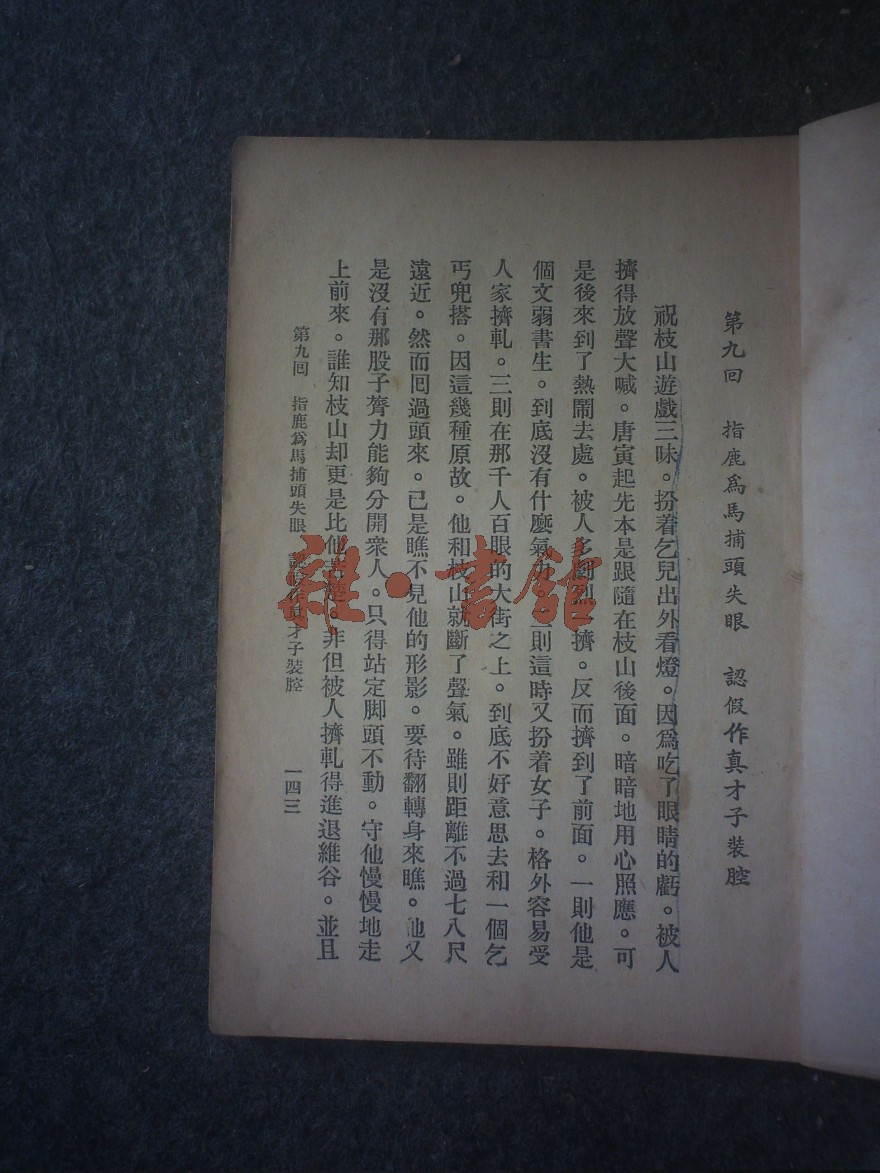 第九回　指鹿爲馬捕頭失眼　認假作真才子裝腔
祝枝山遊戲三昧。扮着乞兒出外看燈。因爲吃了眼睛的虧。被人
擠得放聲大喊。唐寅起先本是跟隨在枝山後面。暗暗地用心照應。可
是後來到了熱鬧去處。被人多劇烈一擠。反而擠到了前面。一則他是
個文弱書生。到底沒有什麽氣力。則這時又扮着女子。格外容易受
人家擠軋。三則在那千人百眼的大街之上。到底不好意思去和一個乞
丐兜搭。因這幾種原故。他和枝山就斷了聲氣。雖則距離不過七八尺
遠近。然而囘過頭來。已是瞧不見他的形影。要待翻轉身來瞧。他又
是沒有那股子膂力能夠分開衆人。只得站定脚頭不動。守他慢慢地走
上前來。誰知枝山却更是比他。非但被人擠軋得進退維谷。並且
第九囘　指鹿爲馬捕頭失眼　認假作真才子裝腔　一四三
雜·書館